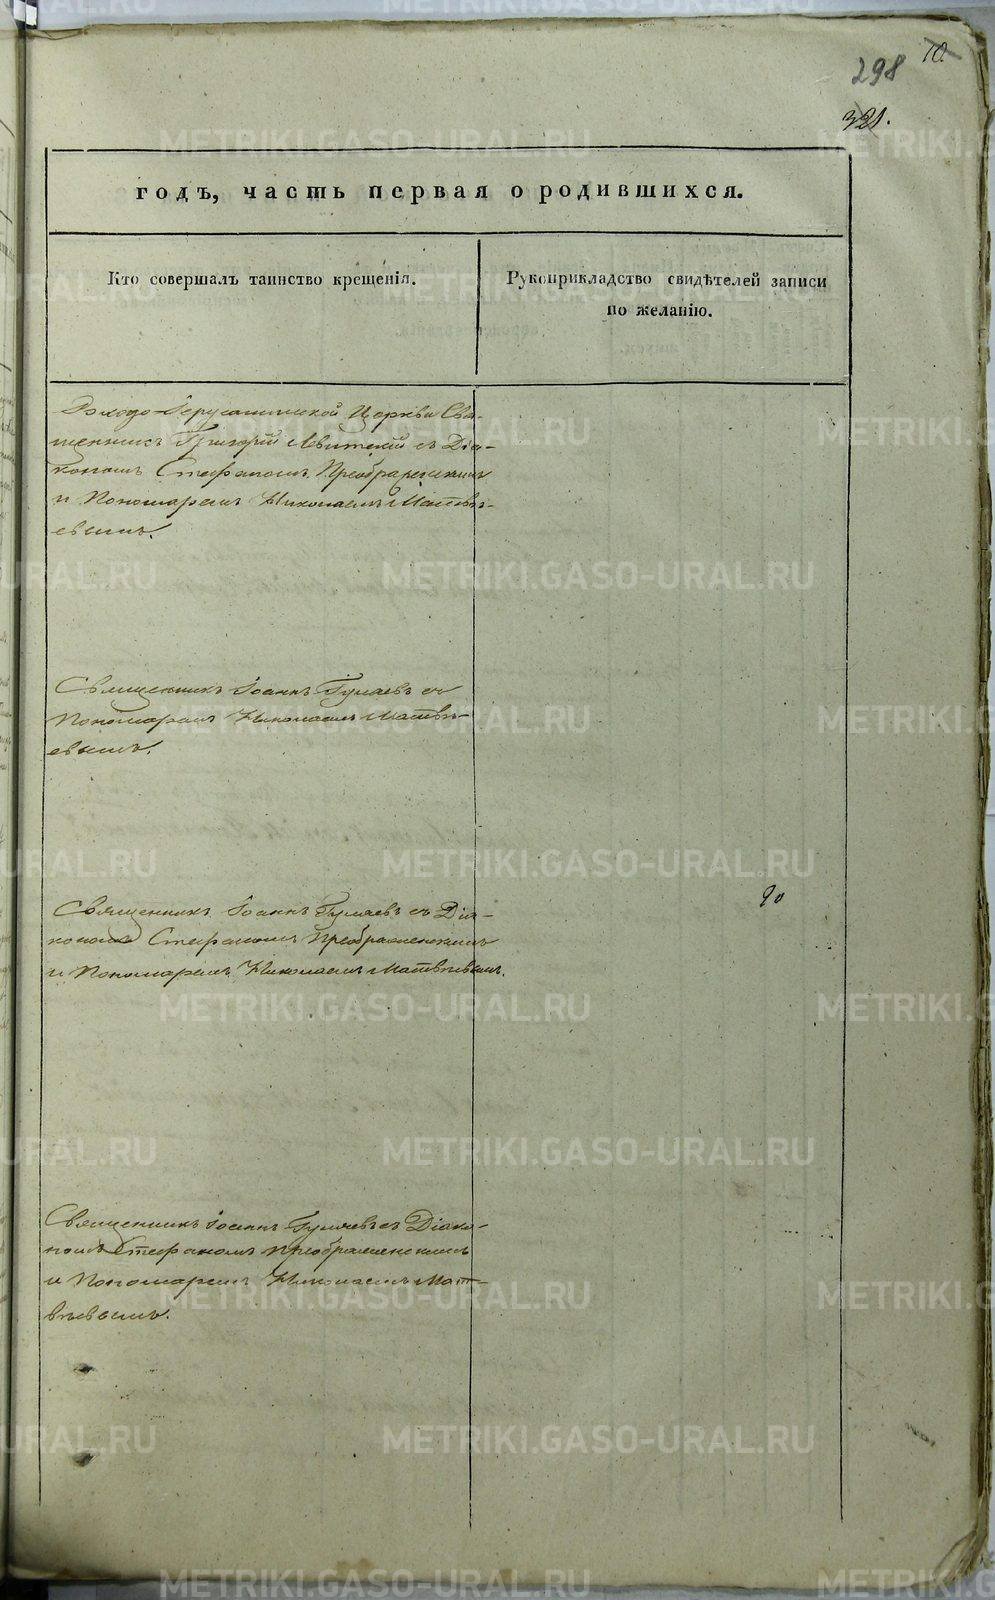 10.
298
321.
годъ, часть первая о родившихся.
Кто совершалъ таинство крещенія.
Рукоприкладство свидѣтелей записи
по желанію.
Входо-Іерусалимской Церкви Свя-
щенникъ Григорій Левитскій съ Діа-
кономъ Стефаномъ Преображенскимъ
и Пономаремъ Николаемъ Матвѣ-
евымъ.
Священникъ Іоаннъ Гуляевъ съ
Пономаремъ Николаемъ Матвѣ-
евымъ.
Священникъ Іоаннъ Гуляевъ съ Діа-
кономъ Стефаномъ Преображенскимъ
и Пономаремъ Николаемъ Матвѣевымъ.
Священникъ Іоаннъ Гуляевъ съ Діако-
номъ Стефаномъ Преображенскимъ
и Пономаремъ Николаемъ Мат-
вѣевымъ.
METRIKI.GASO-URAL.RU